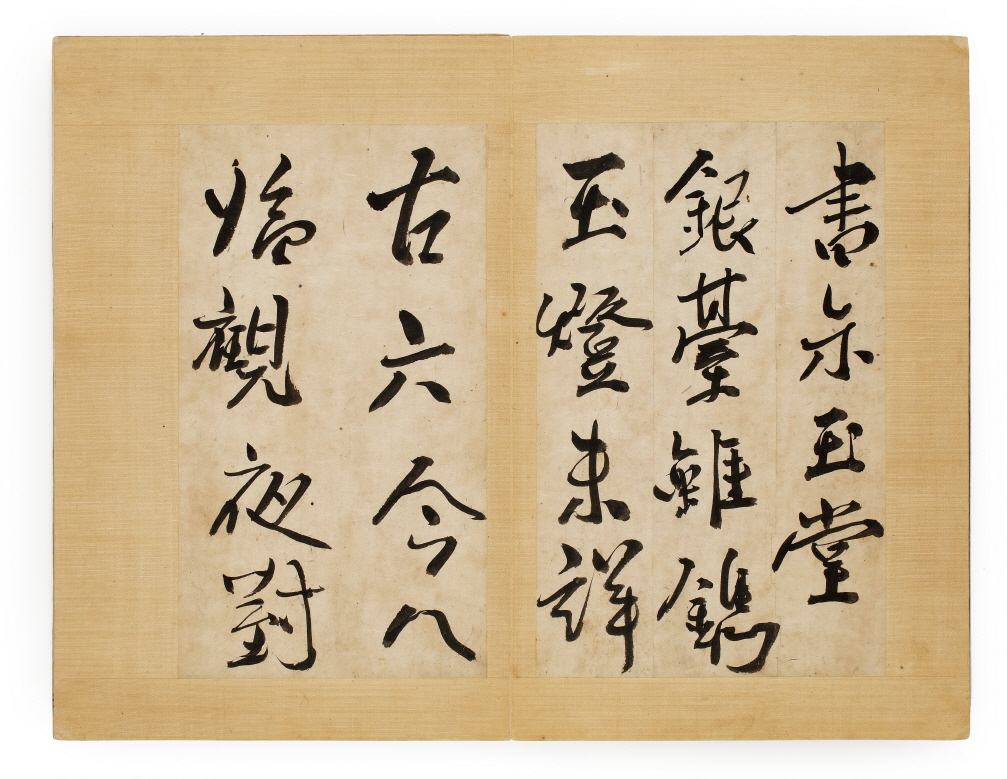 書玉堂
銀臺雖鐫
玉燈未詳
古六今八
觀夜對